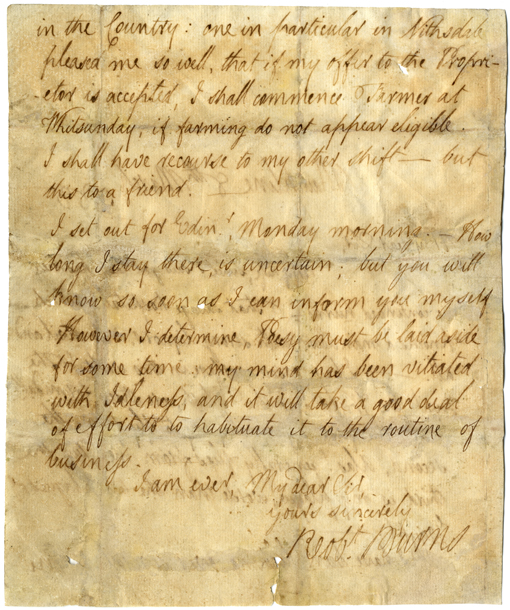 in the Country: one in particular in Nithsdale
pleased me so well, that if my offer to the Propri-
-etor is accepted, I shall commence Farmer at
Whitsunday, if farming do not appear eligible.
I shall have recourse to my other shift — but
this to a friend.
I set out for Edinr. Monday morning. — How
long I stay there, is uncertain; but you will
know so soon as I can inform you myself
However I determine, Poesy must be laid aside
for some time; my mind has been vitiated
with Idleness, and it will take a good deal
of effort to to habituate it to the routine of
business.
I am ever, My dear Sir
yours sincerely
Robt. Burns